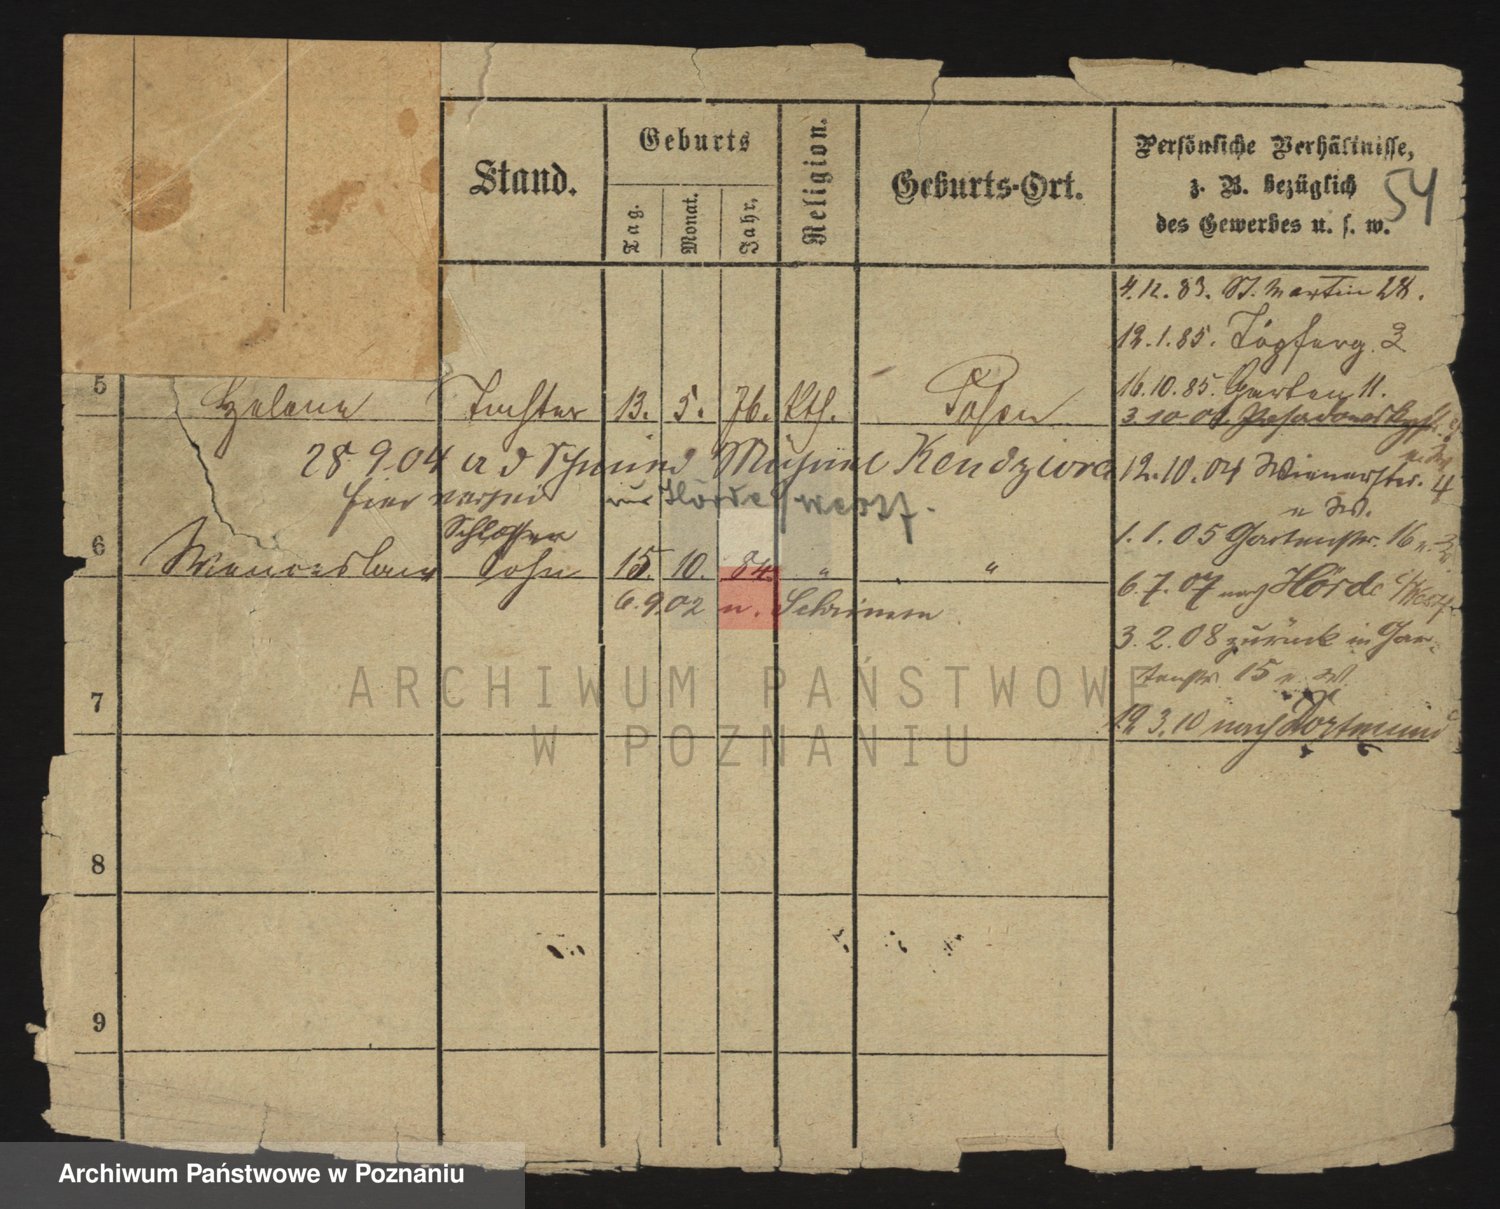 Stand.
Geburts
Tag.
Monat.
Jahr.
Religion.
Geburts-Ort.
Persönliche Verhältnisse,
z. B. bezüglich
des Gewerbes u. s. w.
54
4.12.83. St. Martin 28.
12.1.85. Töpferg. 3
16.10.85. Garten 11.
5 Helene Tochter 13. 5. 76. Kth. Posen
3.10.01.
28.9.04 a d Schmied Kendziora
12.10.04 Wienerstr. 4
hier in Hörde Westf.
Schlosser
1.1.05 Gartenstr. 16
6 Wenceslaus Sohn 15. 10. 84. " "
6.9.02 n. Schrimm
6.7.07 nach Hörde i/Westf.
3.2.08 zurück in Gar-
tenstr. 15
7
19.3.10 nach Dortmund
8
9
ARCHIWUM PAŃSTWOWE
W POZNANIU
Archiwum Państwowe w Poznaniu